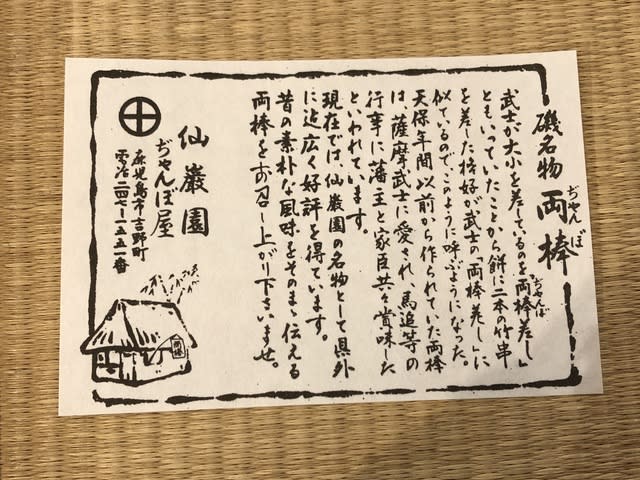 磯名物 両棒
ぢゃんぼ
武士が大小を差しているのを「両棒差し」
ぢゃんぼ
ともいっていたことから餅に二本の竹串
を差した格好が武士の「両棒差し」に
似ているのでこのように呼ぶようになった。
天保年間以前から作られていた両棒
は、薩摩武士に愛され、馬追等の
行事に藩主と家臣共々賞味した
といわれています。
現在では、仙巌園の名物として県外
に迄広く好評を得ています。
昔の素朴な風味をそのまゝ伝える
両棒をお召し上がり下さいませ。
仙巌園
ぢゃんぼ屋
鹿児島市吉野町
電話二四七-一五五一番
両棒